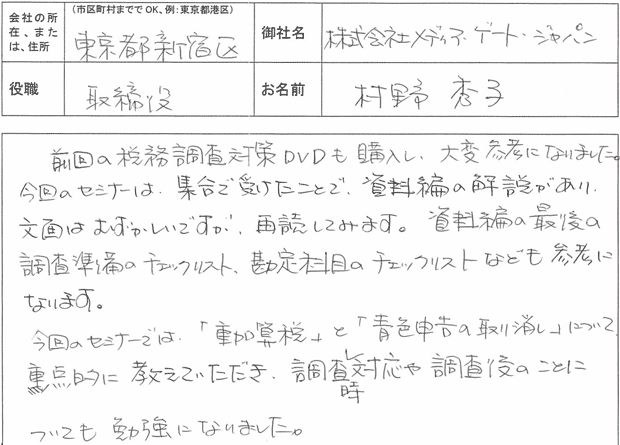 会社の所在、または、住所
(市区町村まででOK、例:東京都港区)
東京都新宿区
御社名
株式会社メディア・ゲート・ジャパン
役職
取締役
お名前
村野 秀子
前回の税務調査対策DVDも購入し、大変参考になりました。
今回のセミナーは、集合で受けたことで、資料編の解説があり、
文面はむずかしいですが、再読してみます。資料編の最後の
調査準備のチェックリスト、勘定科目のチェックリストなども参考に
なります。
今回のセミナーでは、「重加算税」と「青色申告の取り消し」について
重点的に教えていただき、調査時対応や調査後のことに
ついても勉強になりました。